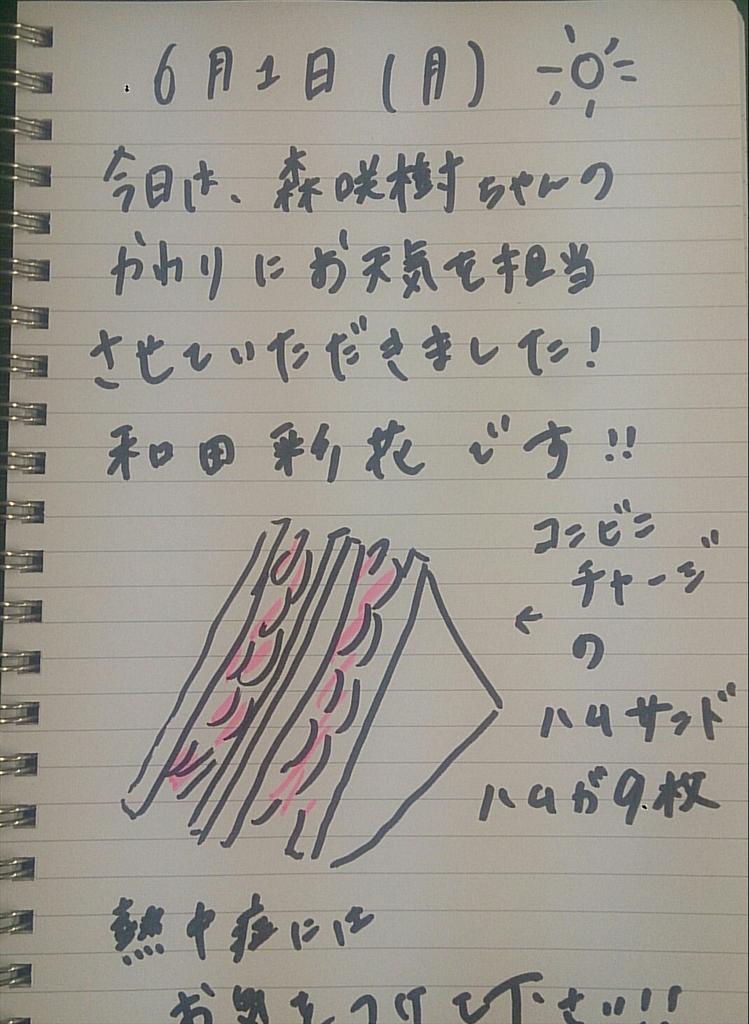 6月1日(月)
今日は、森咲樹ちゃんの
かわりにお天気を担当
させていただきました!
和田彩花です!!
コンビニ
チャージ
の
ハムサンド
ハムが9枚
熱中症には
お気をつけて下さい!!